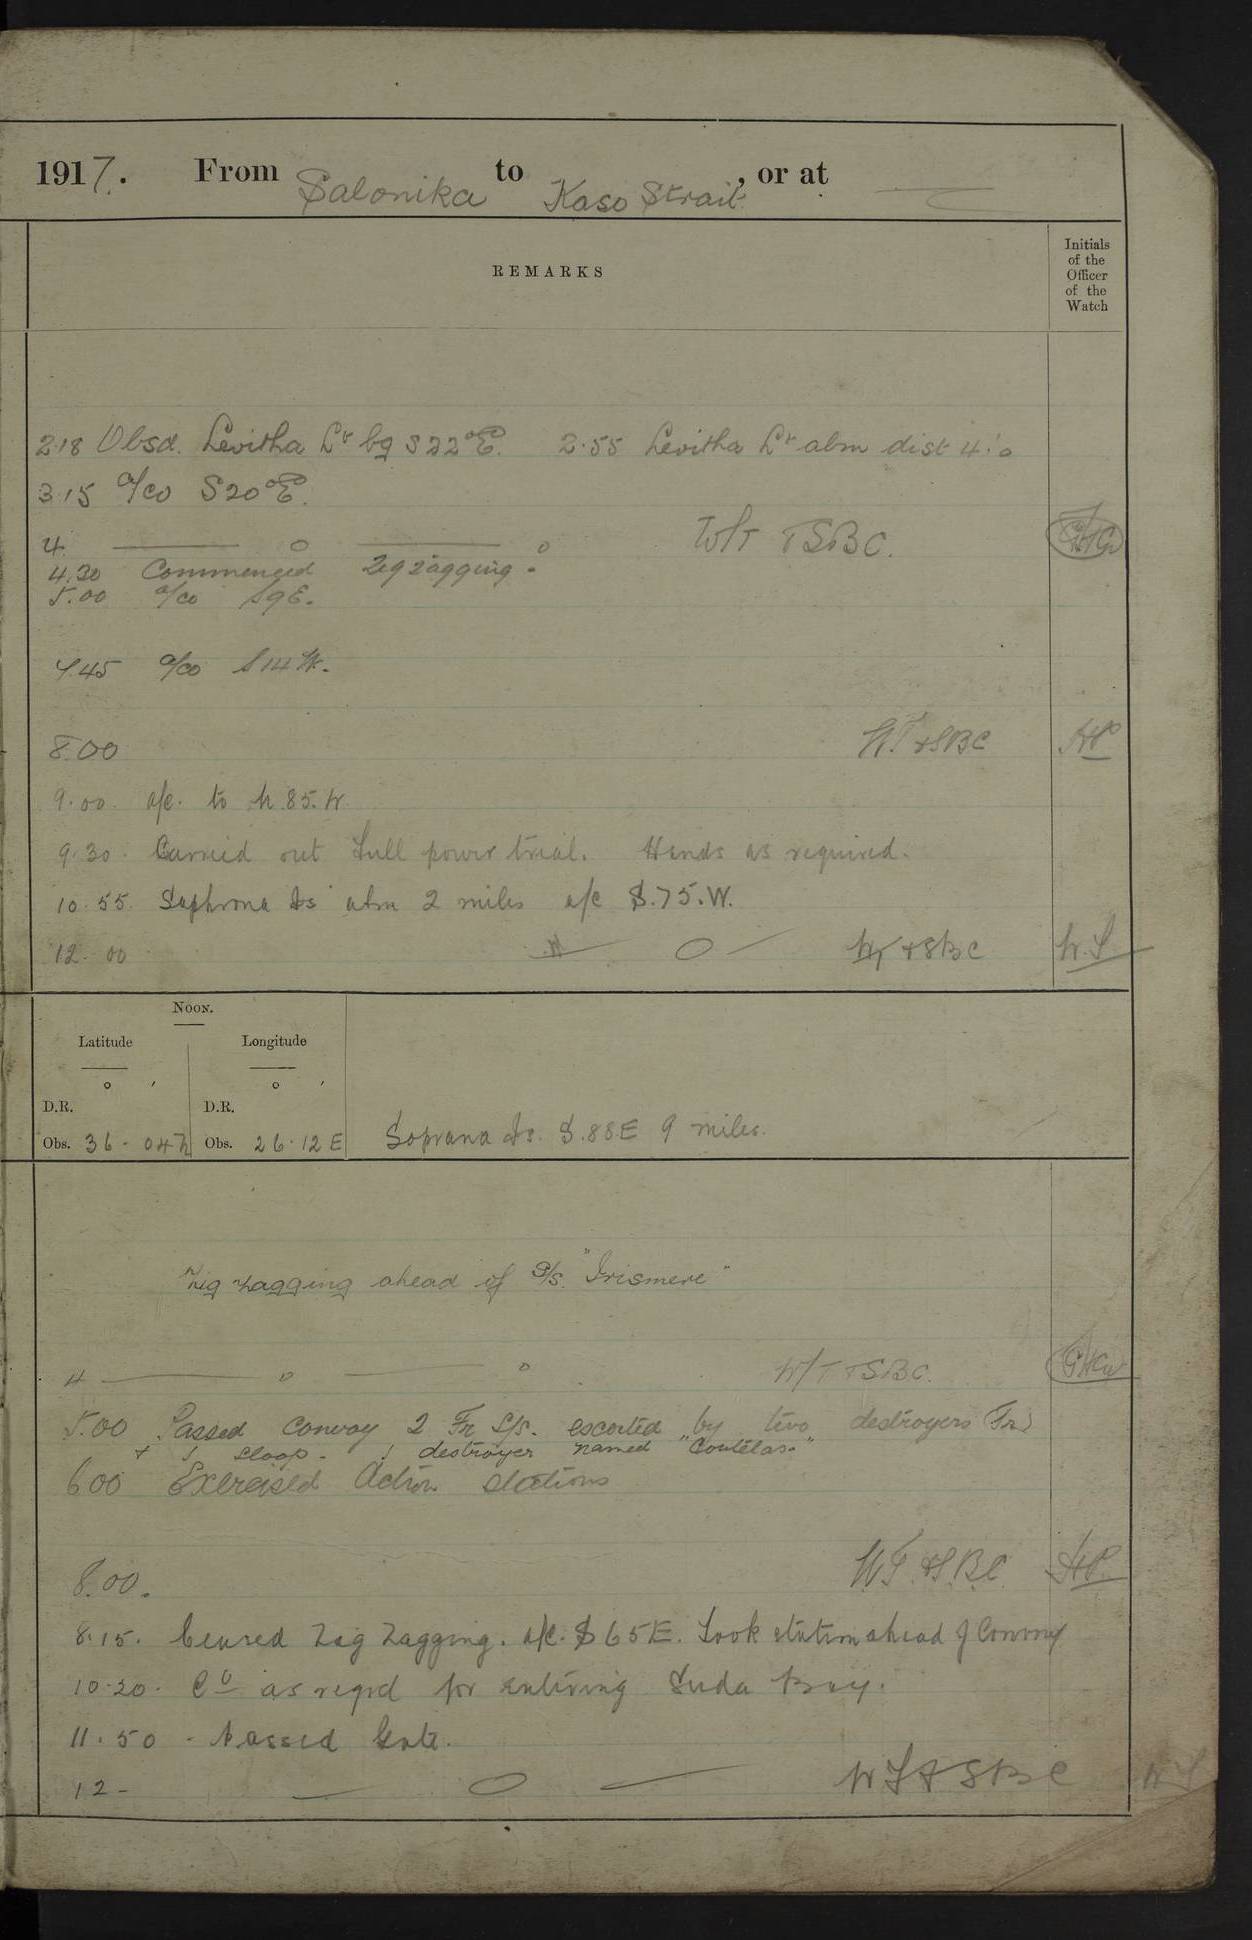 1917. From Salonika to Kaso Strait, or at
REMARKS
Initials of the Officer of the Watch
2.18 Obsd. Levitha Lt bg S22°E. 2.55 Levitha Lt abm dist 4'.0
3.15 a/co S20°E.
4 —— o —— o W/T & SBC.
4.30 Commenced zigzagging.
5.00 a/co S9E.
7.45 a/co S14W.
8.00 WT & SBC HP
9.00 a/c. to N.85.W
9.30. Carried out full power trial. Hands as required.
10.55. Saphrona Is abm 2 miles a/c S.75.W.
12.00 — O — WT & SBC W.S
Noon.
Latitude Longitude
° ' ° '
D.R. D.R.
Obs. 36-04N Obs. 26.12E Soprana Is. S.88E 9 miles.
Zig zagging ahead of S/S. "Irismere"
4 —— o —— o W/T & SBC.
5.00 Passed convoy 2 Fr S/s. escorted by two destroyers (Fr)
+ 1 sloop. 1 destroyer named "Coutelas."
6.00 Exercised Action stations
8.00. WT. & S.B.C. HP.
8.15. Ceased Zig Zagging. a/c. S65E. Took station ahead of Convoy
10.20. Co as reqrd for entering Suda Bay.
11.50. Passed Gate.
12 — O — WT & SBC W S